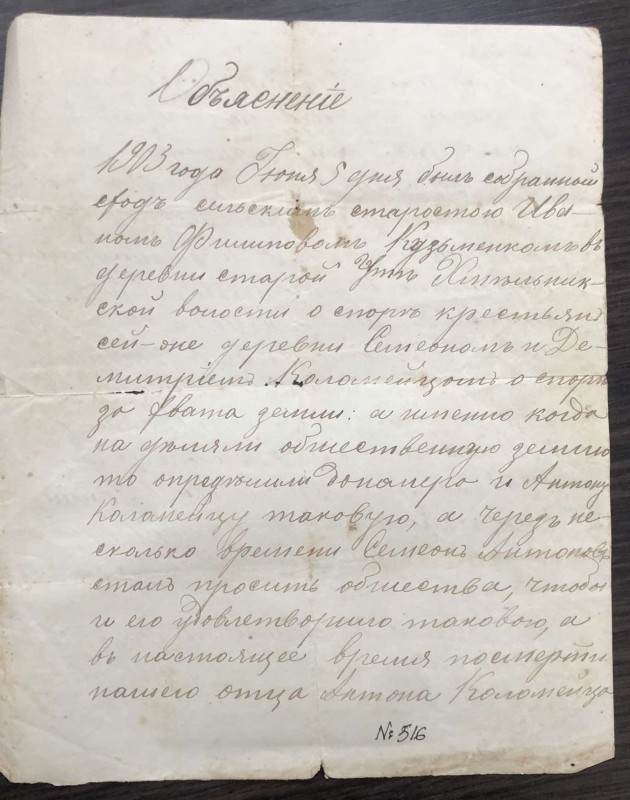 Объясненіе
1903 года Іюня 5 дня былъ собранной
сходъ сельскимъ старостою Ива-
номъ Филиповомъ Кузьменкомъ въ
деревни старой Утъ
ской волости о споръ крестьянъ
сей-же деревни Семеономъ и Де-
митріемъ Коломейцомъ о споръ
за земли: а именно когда
на дѣляли обшественную землю
то опредѣлили и Антону
Коламейцу таковую, а черезъ не-
сколько времени Семеонъ Антоновъ
сталъ просить обшества, чтобы
и его удовлетворило таковою, а
въ настоящее время посмерти
нашего отца Антона Коломейца
№ 516